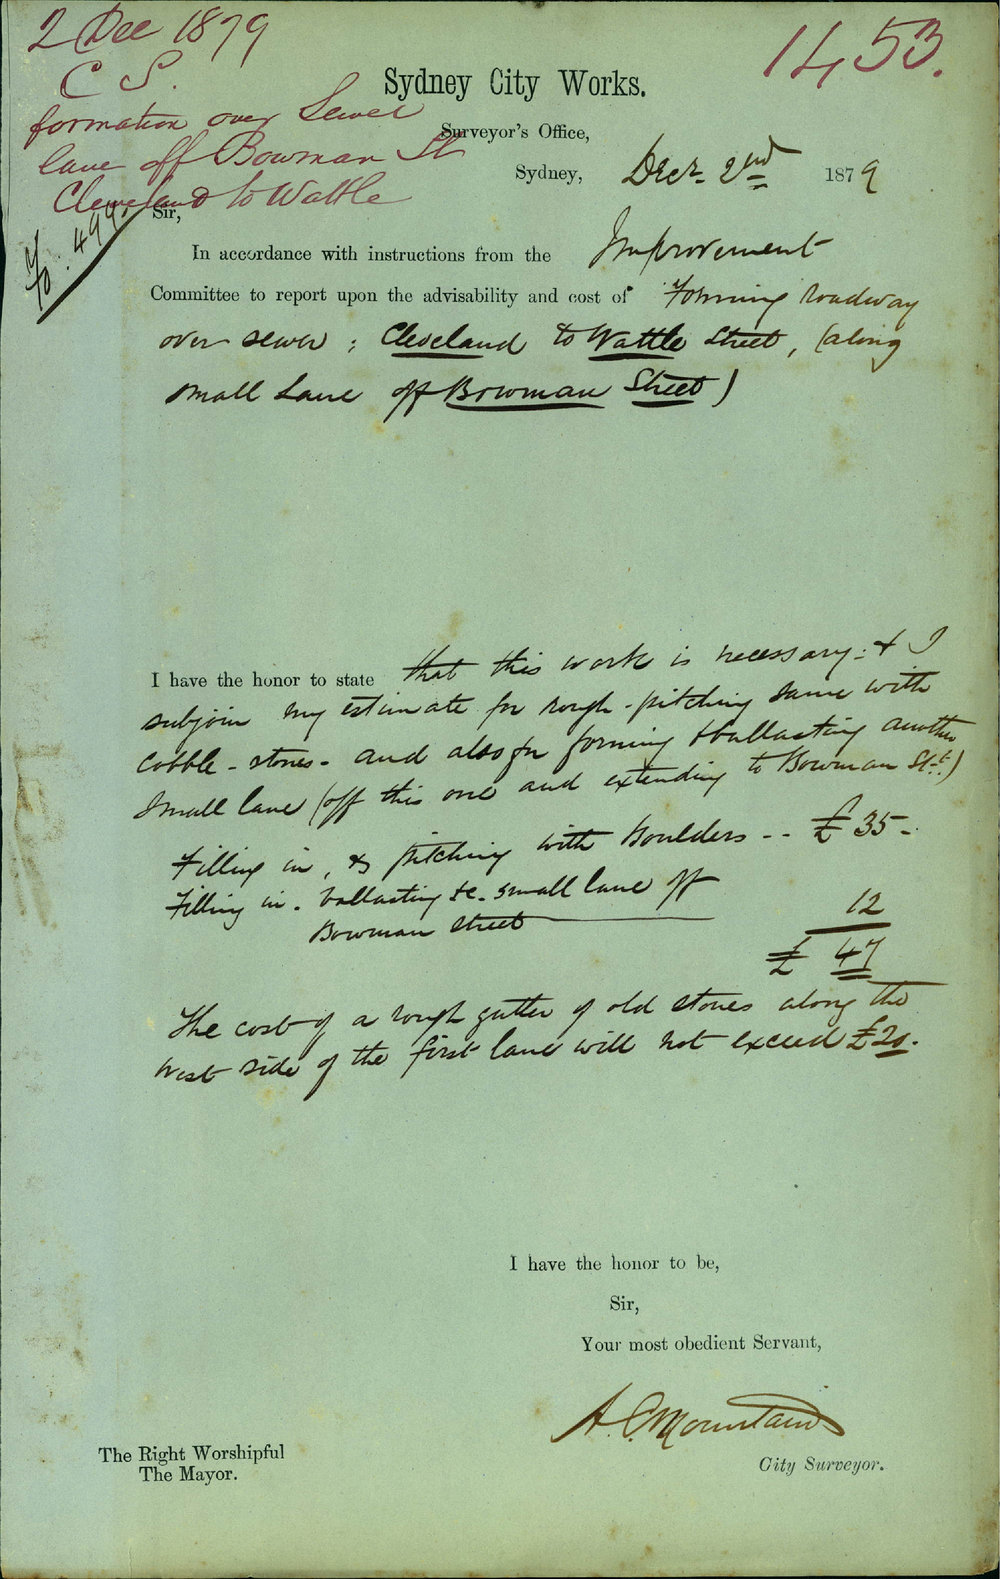 2 Dec 1879
C S.
formation over Sewer
lane off Bowman St
Cleveland to Wattle
1453.
499.
Sydney City Works.
Surveyor's Office,
Sydney, Decr. 2nd 1879
Sir,
In accordance with instructions from the Improvement
Committee to report upon the advisability and cost of Forming roadway
over sewer; Cleveland to Wattle Street, (along
small Lane off Bowman Street)
I have the honor to state that this work is necessary: & I
subjoin my estimate for rough-pitching same with
cobble-stones - and also for forming & ballasting another
small lane (off this one and extending to Bowman St.)
Filling in, & pitching with boulders -- £ 35 -.
Filling in. ballasting &c. small lane off
Bowman Street 12
£ 47
The cost of a rough gutter of old stones along the
West side of the first lane will not exceed £20.
I have the honor to be,
Sir,
Your most obedient Servant,
A. C. Mountain
City Surveyor.
The Right Worshipful
The Mayor.